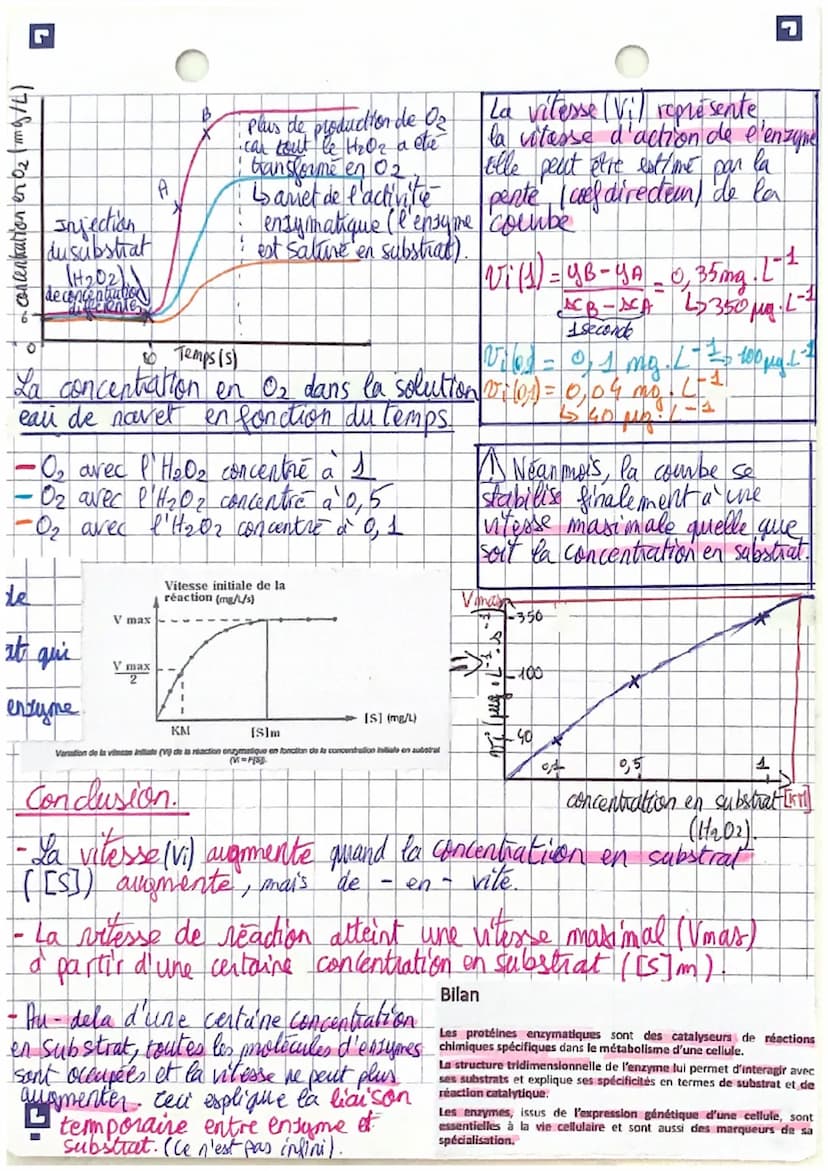 concentration en O2 (mg/L)
0
0
10
Temps(s)
A
B
Injection
du substrat
(H2O2)
de concentration
différentes
plus de production de O2
car tout le H2O2 a été
transformé en O2
↳ arret de l'activité
enzymatique (l'enzyme
est saturé en substrat).
La concentration en O2 dans la solution
eau de navet en fonction du temps
- O2 avec l'H2O2 concentré à 1
- O2 avec l'H2O2 concentré à 0,5
- O2 avec l'H2O2 concentré à 0,1
La vitesse (Vi) représente
la vitesse d'action de l'enzyme
Elle peut être estimé par la
pente (coef directeur) de la
courbe
Vi(1) = yB - yA / xB - xA = 0,35mg.L-1
1 seconde
↳ 350 µg.L-1
= 0,1 mg.L-1 ↳ 100µg.L-1
Vi(0,1) = 0,04 mg.L-1
↳ 40 µg.L-1
⚠ Néanmois, la courbe se
stabilise finalement à une
vitesse maximale quelle que
soit la concentration en substrat.
de
at qui
enzyme
Vitesse initiale de la
réaction (mg/L/s)
V max
V max
2
KM
[S]m
[S] (mg/L)
Variation de la vitesse initiale (Vi) de la réaction enzymatique en fonction de la concentration initiale en substrat
(Vi = F[S]).
⇒
Vmax
350
100
40
Vi (µg.L-1.s-1)
0,1
0,5
1
concentration en substrat [KM]
(H2O2).
Conclusion.
- La vitesse (Vi) augmente quand la concentration en substrat
([S]) augmente, mais de - en - vite.
- La vitesse de réaction atteint une vitesse maximal (Vmax)
à partir d'une certaine concentration en substrat ([S]m).
- Au-dela d'une certaine concentration
en substrat, toutes les molécules d'enzymes
sont occupées et la vitesse ne peut plus
augmenter. Ceci explique la liaison
temporaire entre enzyme et
substrat. (Ce n'est pas infini).
Bilan
Les protéines enzymatiques sont des catalyseurs de réactions
chimiques spécifiques dans le métabolisme d'une cellule.
La structure tridimensionnelle de l'enzyme lui permet d'interagir avec
ses substrats et explique ses spécificités en termes de substrat et de
réaction catalytique.
Les enzymes, issus de l'expression génétique d'une cellule, sont
essentielles à la vie cellulaire et sont aussi des marqueurs de sa
spécialisation.